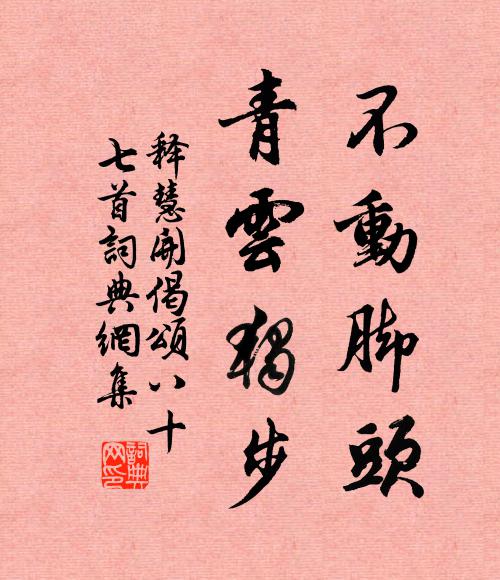 不動脚頭
青雲獨步
釋慧開偈頌八十
七首詞典網集
詞典
网印